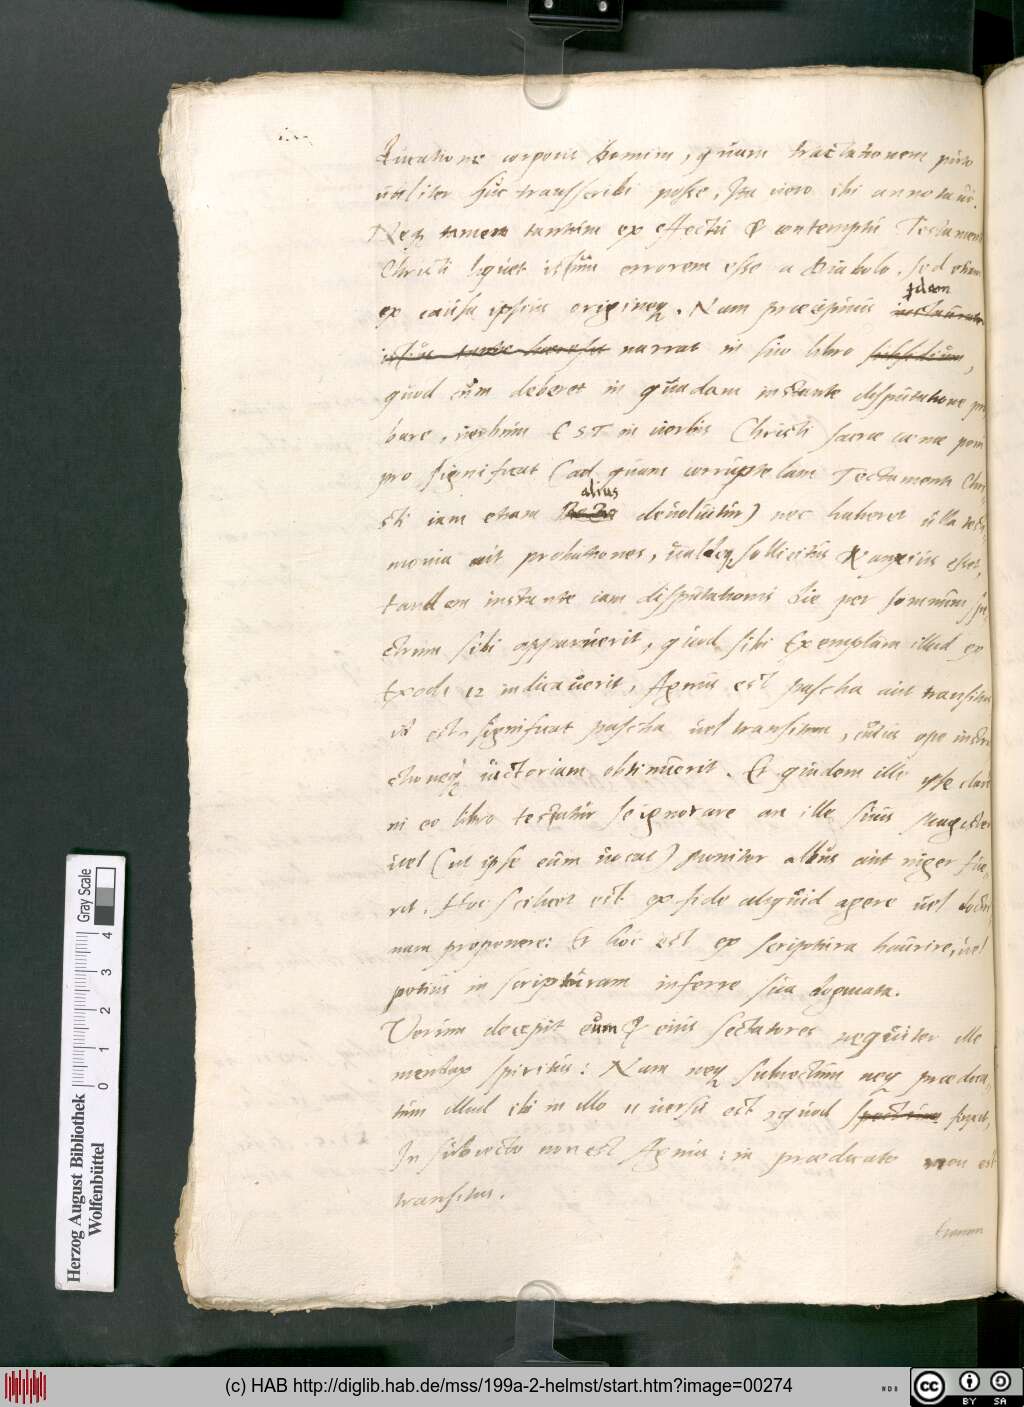 corporis Domini, quam tractationem puto
utiliter huc transscribi posse. Ita vero ibi annotavi.
Neq tamen tantum ex effectu & contemptu Testamenti
Christi liquet istum errorem esse a Diabolo, sed etiam
ex causa ipsius origineq. Nam præcipuus
quidem
narrat in suo libro
quod cum deberet in quadam instante disputatione pro
bare, verbum EST in verbis Christi sacræ cænæ poni
pro significat (ad quam corruptelam Testamenti Chri
sti iam etiam alius devolvitur) nec haberet ulla testi
monia aut probationes, valdeq sollicitus & anxius esset,
tandem instante iam disputationis die per somnum spe
ctrum sibi apparuerit, quod sibi Exemplum illud ex
Exodi 12 indicaverit, Agnus est pascha aut transitus
id est, significat pascha vel transitum, cuius ope instru
ctioneq victoriam obtinuerit. Et quidem ille ipse clari
ni eo libro testatur se ignorare an ille suus magister
vel (ut ipse eum vocat) monitor albus aut niger fue
rit. Hoc scilicet est ex fide aliquid agere vel doctri
nam proponere: Et hoc est ex scriptura haurire, vel
potius in scripturam inferre sua dogmata.
Verum decepit eum & eius sectatores nequiter ille
mendax spiritus: Nam neq subiectum neq prædica
tum illud ibi in illo 11 versu est, quod finxit,
In subiecto non est Agnus: in prædicato non est
transitus.
(c) HAB http://diglib.hab.de/mss/199a-2-helmst/start.htm?image=00274
Herzog August Bibliothek
Wolfenbüttel
0 1 2 3 4
Gray Scale
CC BY SA